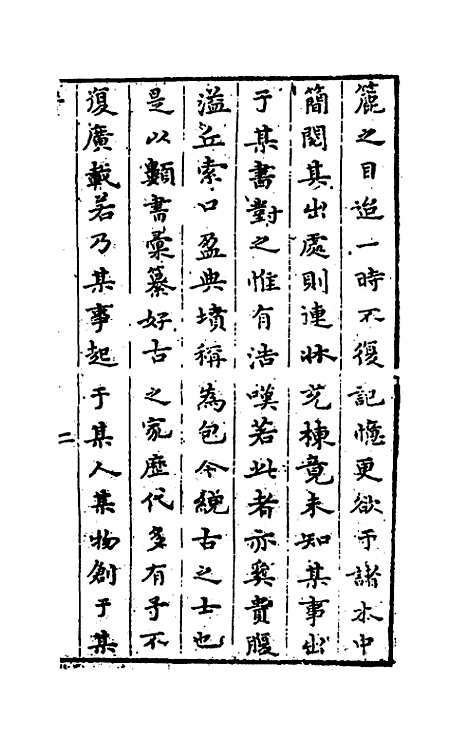 簏之目迨一時不復記憶更欲于諸本中
簡閱其出處則連牀充棟竟未知某事出
于某書對之惟有浩嘆若此者亦奚貴腹
溢丘索口盈典墳稱為包今綂古之士也
是以類書彙纂好古之家歷代多有予不
復廣載若乃某事起于某人某物創于某
二